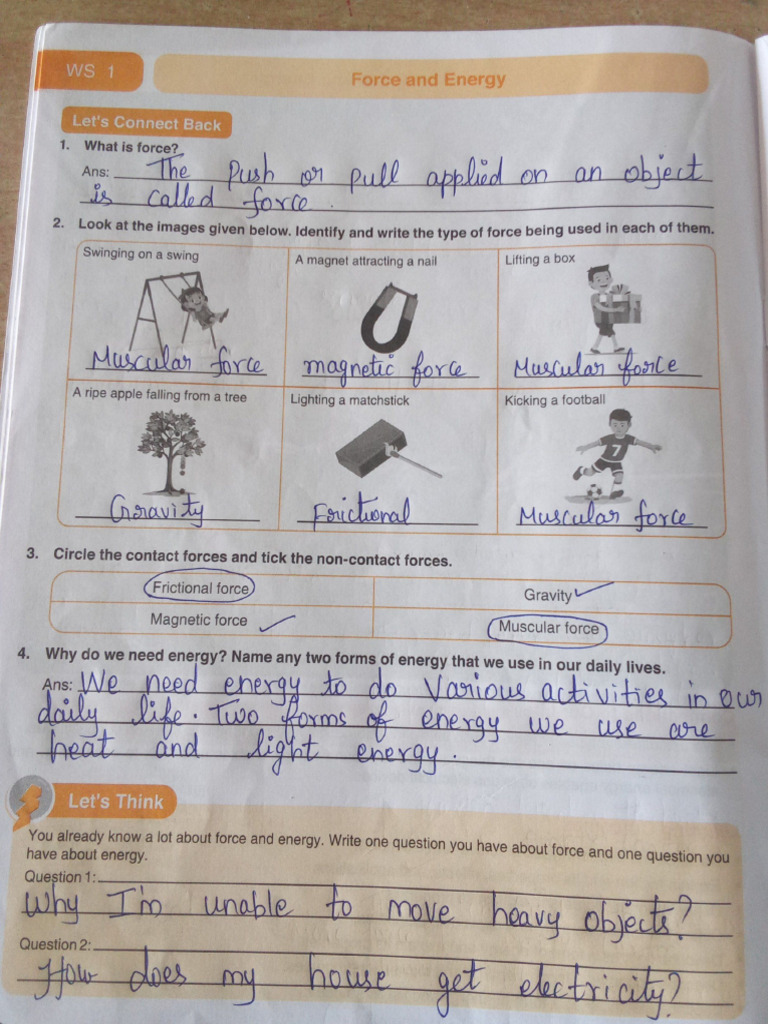 WS 1
Force and Energy
Let's Connect Back
1. What is force?
Ans: The Push or pull applied on an object
is called force.
2. Look at the images given below. Identify and write the type of force being used in each of them.
Swinging on a swing
Muscular force
A magnet attracting a nail
magnetic force
Lifting a box
Muscular force
A ripe apple falling from a tree
Gravity
Lighting a matchstick
Frictional
Kicking a football
7
Muscular force
3. Circle the contact forces and tick the non-contact forces.
Frictional force
Gravity
Magnetic force
Muscular force
4. Why do we need energy? Name any two forms of energy that we use in our daily lives.
Ans: We need energy to do Various activities in our
daily life. Two forms of energy we use are
heat and light energy.
Let's Think
You already know a lot about force and energy. Write one question you have about force and one question you
have about energy.
Question 1:
Why I'm unable to move heavy objects?
Question 2:
How does my house get electricity?